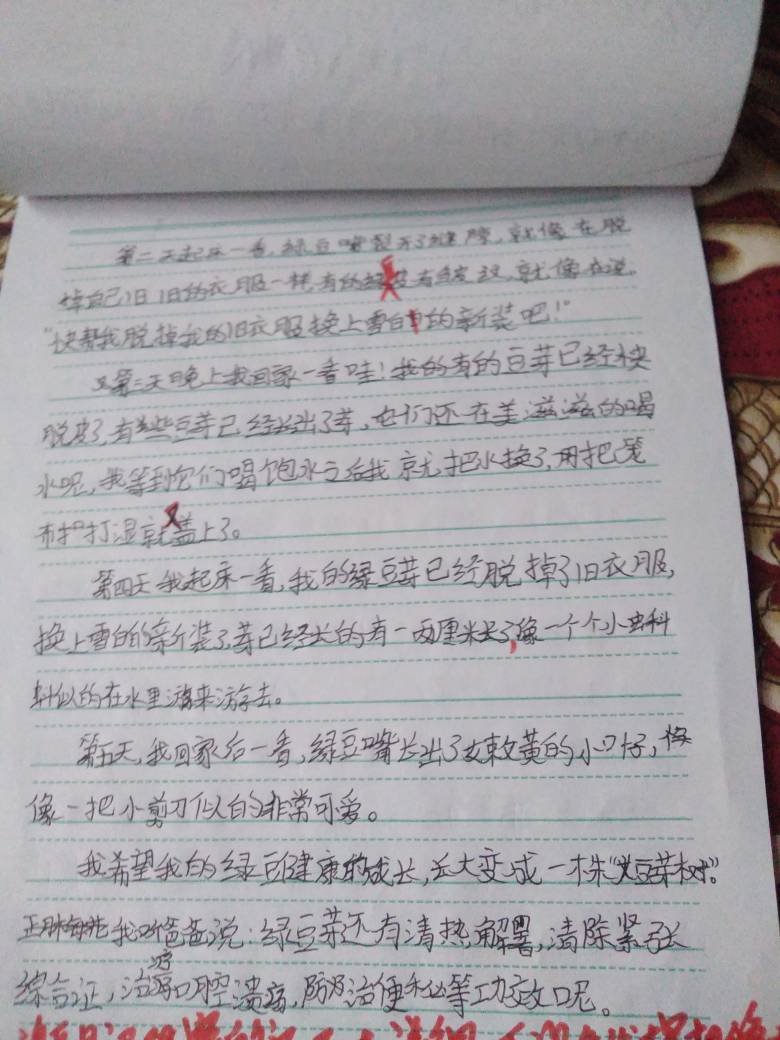 第二天起床一看,绿豆嘴裂开了缝隙,就像在脱
掉自己旧旧的衣服一样,有的绿豆有皱纹,就像在说,
"快帮我脱掉我的旧衣服换上雪白的新装吧!"
第三天晚上我回家一看哇!我的有的豆芽已经快
脱皮了,有些豆芽已经长出了芽,它们还在美滋滋的喝
水呢,我等到它们喝饱水之后我就把水换了,用把笼
布打湿就盖上了。
第四天我起床一看,我的绿豆芽已经脱掉了旧衣服,
换上雪白的新装了,芽已经长的有一两厘米长了,像一个个小蝌
蚪似的在水里游来游去。
第五天,我回家后一看,绿豆嘴长出了嫩黄的小叶子,好
像一把小剪刀似的非常可爱。
我希望我的绿豆健康的成长,长大变成一株"大豆芽树"。
我听爸爸说:绿豆芽还有清热解暑,清除紧张
综合证,治疗口腔溃疡,防治便秘等功效呢。